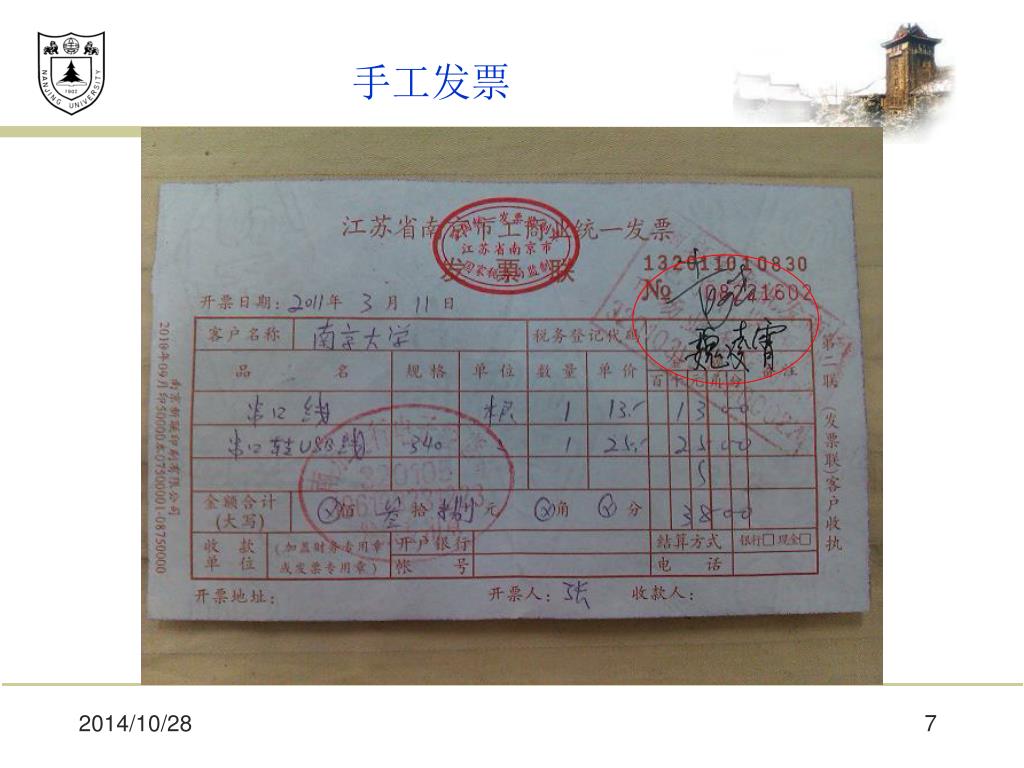 NANJING UNIVERSITY
1902
手工发票
江苏省南京市工商业统一发票
发票联
全国统一发票监制章
江苏省南京市
国家税务局监制
132011010830
№ 08241602
开票日期: 2011年 3月 11日
客户名称 南京大学 税务登记代码
品名 规格 单位 数量 单价 金额 备注
百 十 元 角 分
魏凌霄
串口线 根 1 13.- 13 00
串口转USB线 340 1 25.- 25 00
金额合计 (大写) 佰 叁 拾 捌 元 角 分 38 00
收款单位 (加盖财务专用章或发票专用章) 开户银行 结算方式 银行□ 现金□
帐号 电话
开票地址: 开票人: 张 收款人:
第二联 (发票联) 客户收执
南京新联印刷有限公司
2010年09月印50000本07500001-08750000
320105
2014/10/28
7